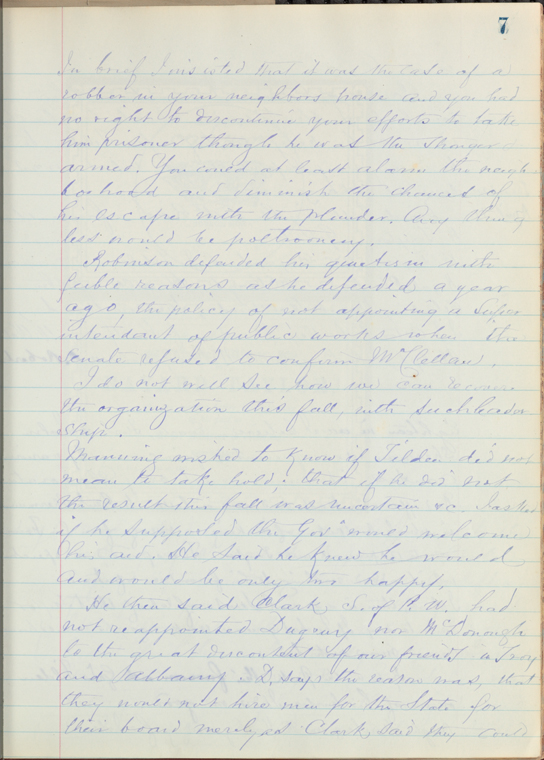 7
In brief I insisted that it was the case of a
robber in your neighbors house and you had
no right to discontinue your efforts to take
him prisoner though he was the stronger
armed. You could at least alarm the neigh
borhood and diminish the chances of
his escape with the plunder. Any thing
less would be poltroonery.
Robinson defended his quietism with
feeble reasons as he defended a year
ago, the policy of not appointing a Super
intendant of public works when the
Senate refused to confirm McClellan.
I do not well see how we can recover
the organization this fall, with such leader
ship.
Manning wished to know if Tilden did not
mean to take hold; that if he did not
the result this fall was uncertain &c. I asked
if he supposed the Govr would welcome
his aid. He said he knew he would
and would be only too happy.
He then said Clark, S. of P. W. had
not reappointed nor McDonough
to the great discontent of our friends in Troy
and D. says the reason was, that
they would not hire men for the State for
their board merely as Clark said they could